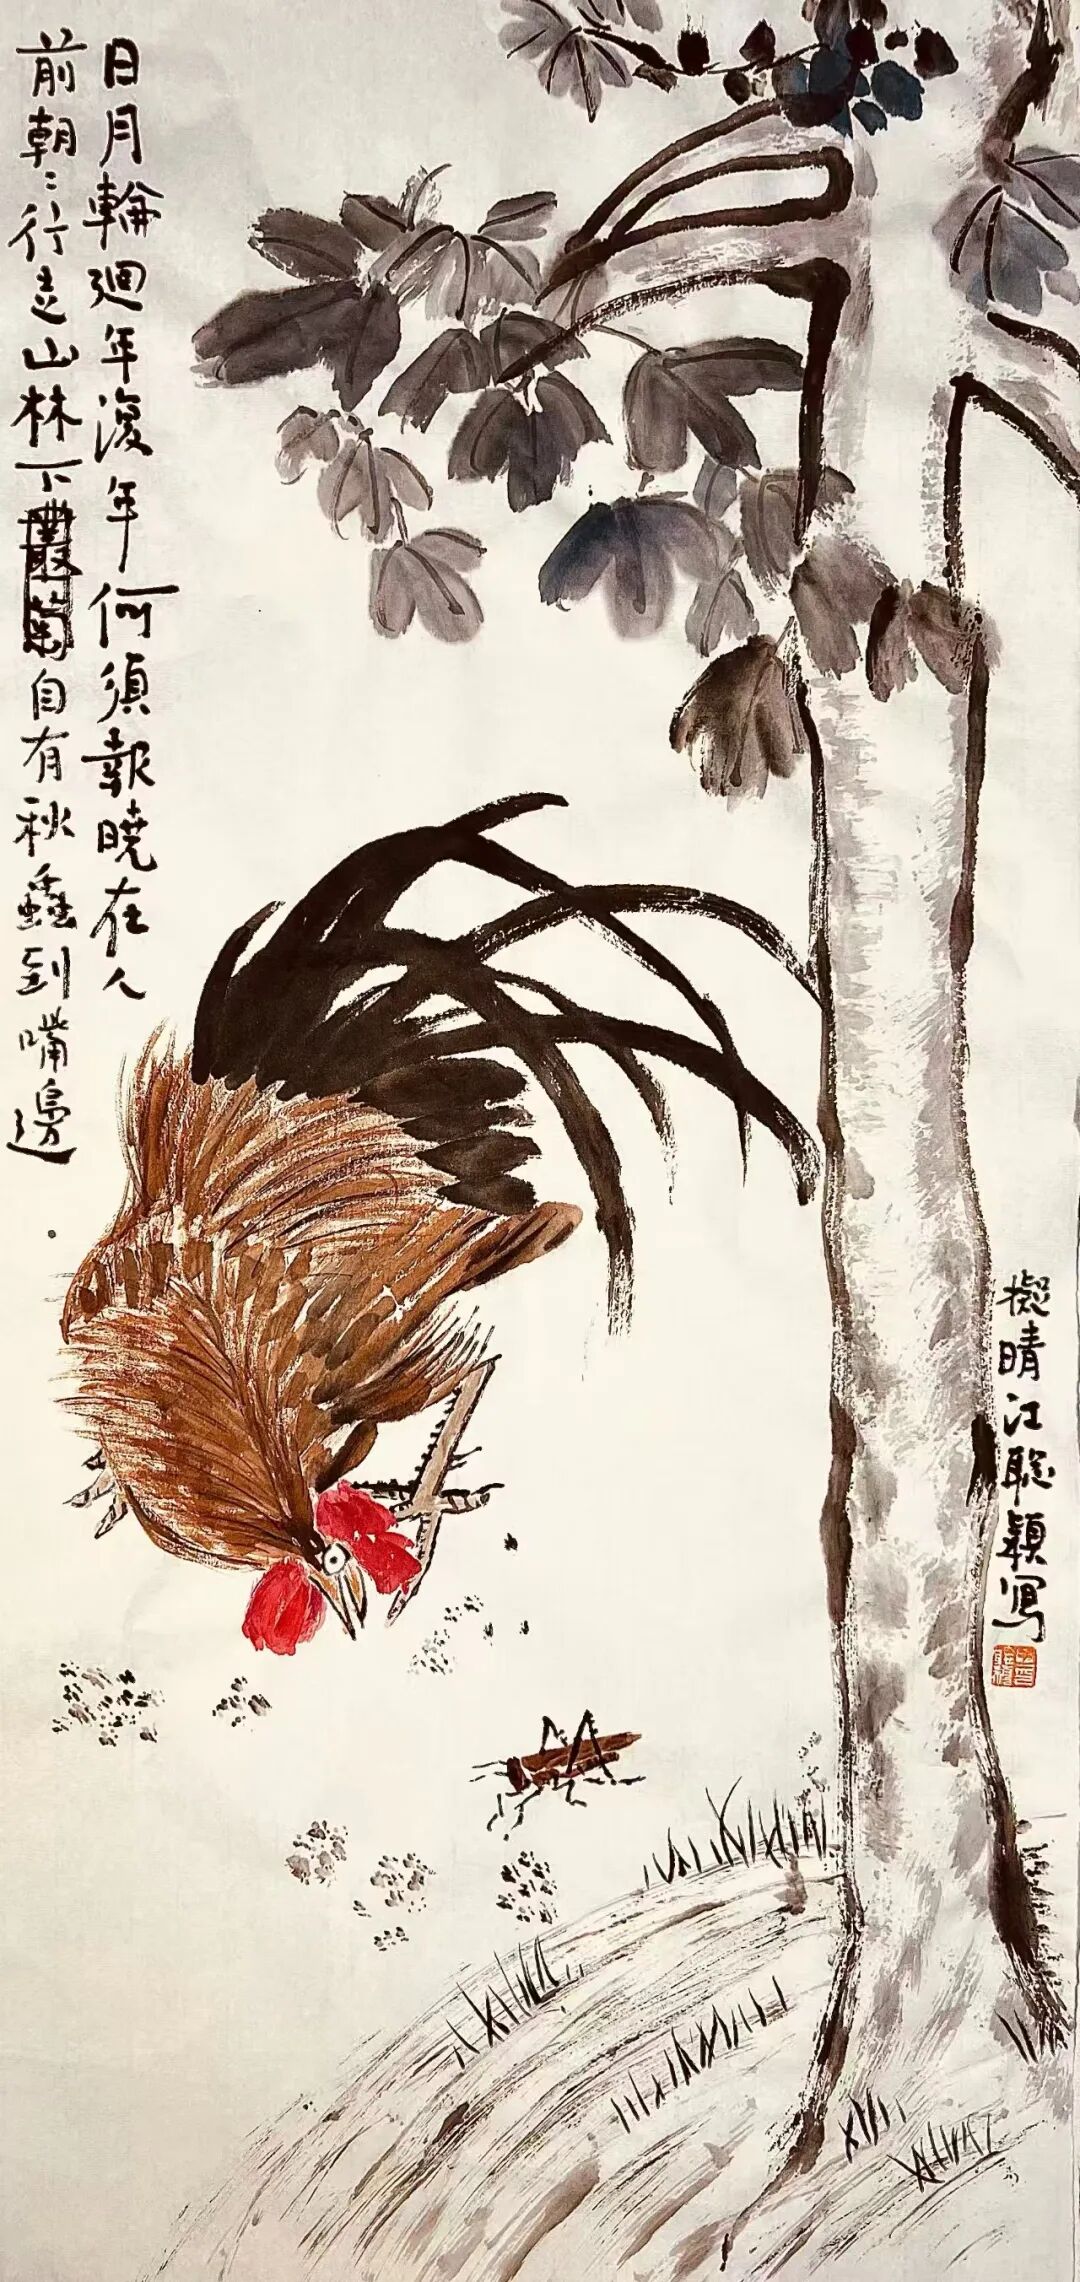 日月輪迴年復年何須報曉在人
前朝〻行走山林下自有秋蟲到嘴邊
擬晴江聰穎寫